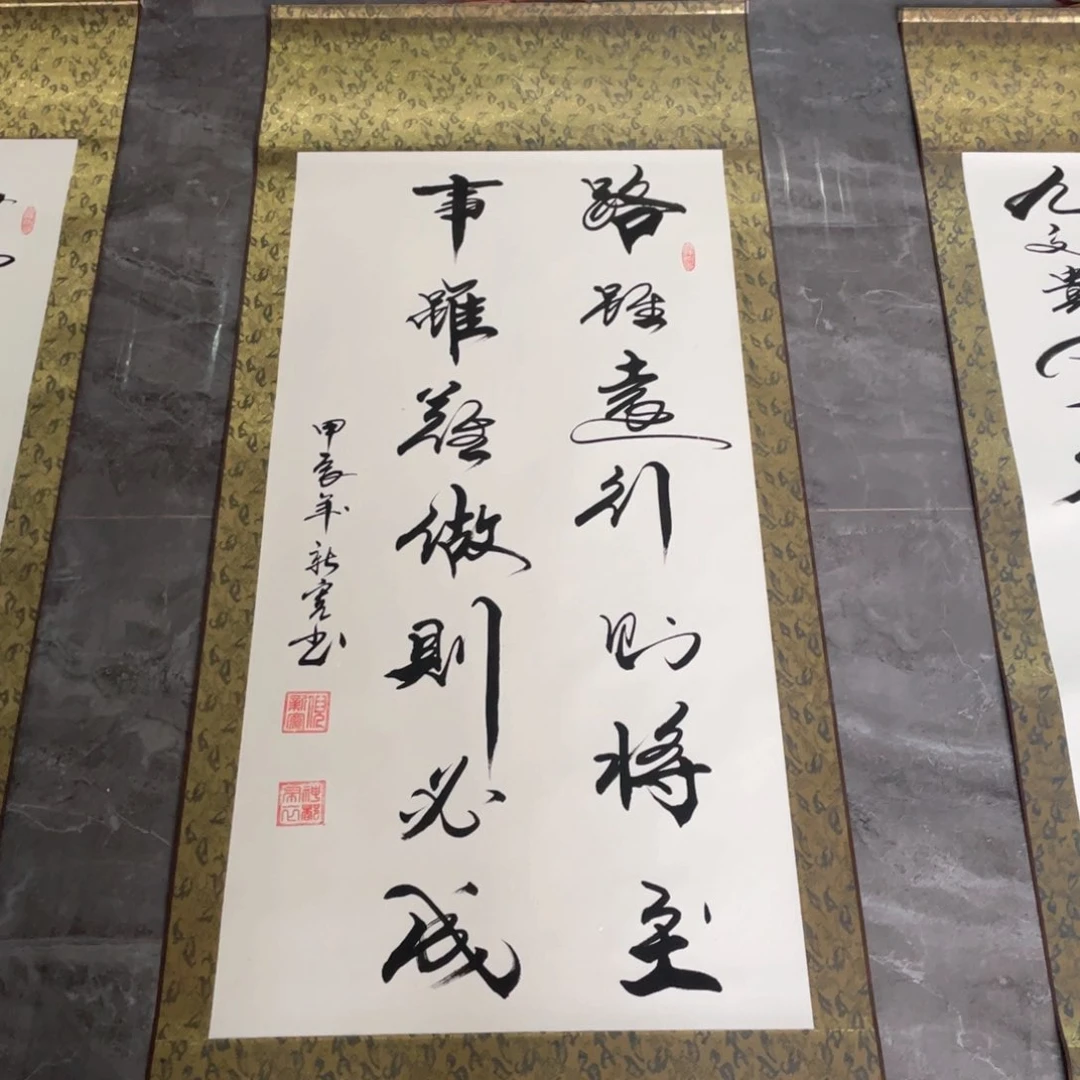 路雖遠行則將至
事雖難做則必成
甲辰年新寬书
九
文貴